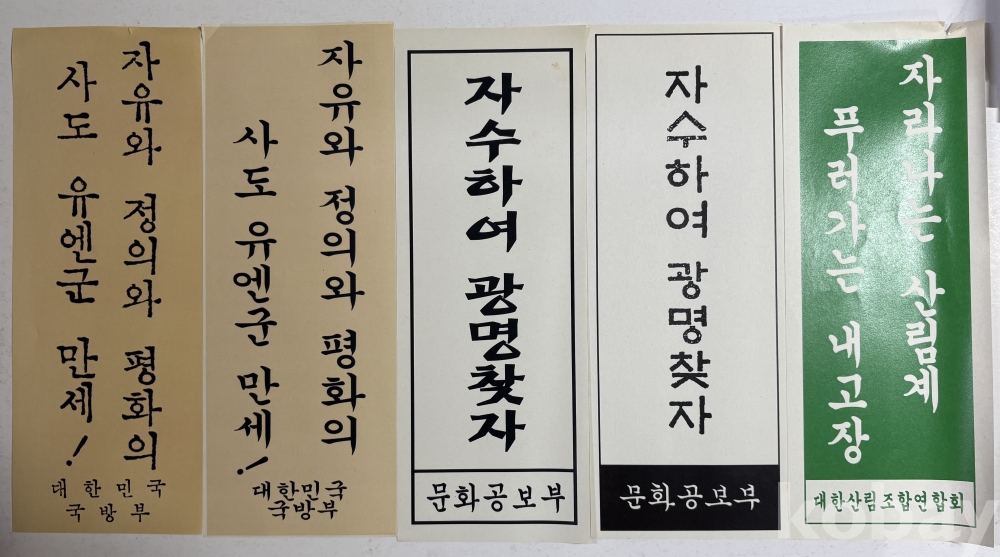 자유와 정의와 평화의
사도 유엔군 만세!
대한민국
국방부
자유와 정의와 평화의
사도 유엔군 만세!
대한민국
국방부
자수하여 광명찾자
문화공보부
자수하여 광명찾자
문화공보부
자라나는 산림계
푸러가는 내고장
대한산림조합연합회
kobay